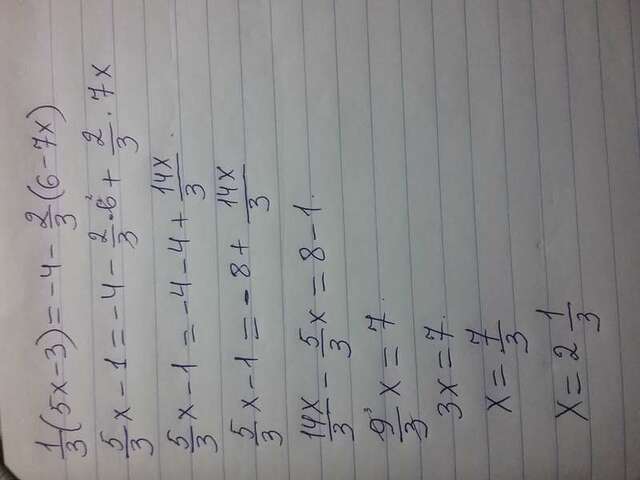 1/3 (5x-3) = -4 - 2/3 (6-7x)
5/3 x - 1 = -4 - 2/3 · 6² + 2/3 · 7x
5/3 x - 1 = -4 - 4 + 14x/3
5/3 x - 1 = -8 + 14x/3
14x/3 - 5/3 x = 8 - 1.
9³/3 x = 7.
3x = 7.
x = 7/3
x = 2 1/3